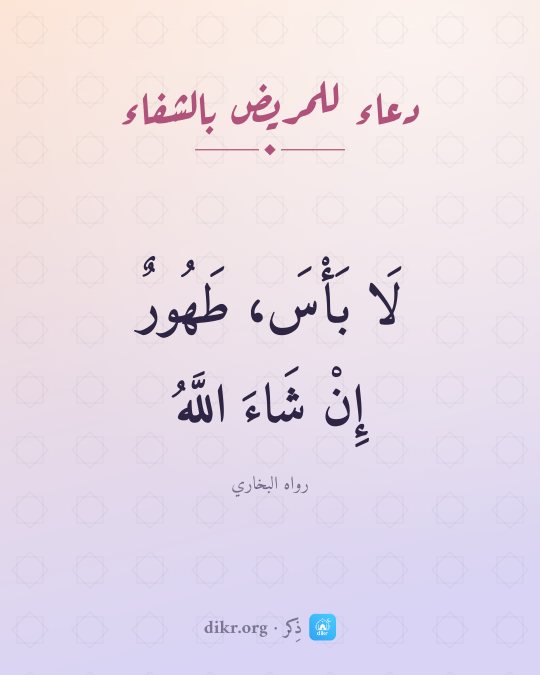 دعاء للمريض بالشفاء
لَا بَأْسَ، طَهُورٌ
إِنْ شَاءَ اللَّهُ
رواه البخاري
ذِكر · dikr.org
dikr